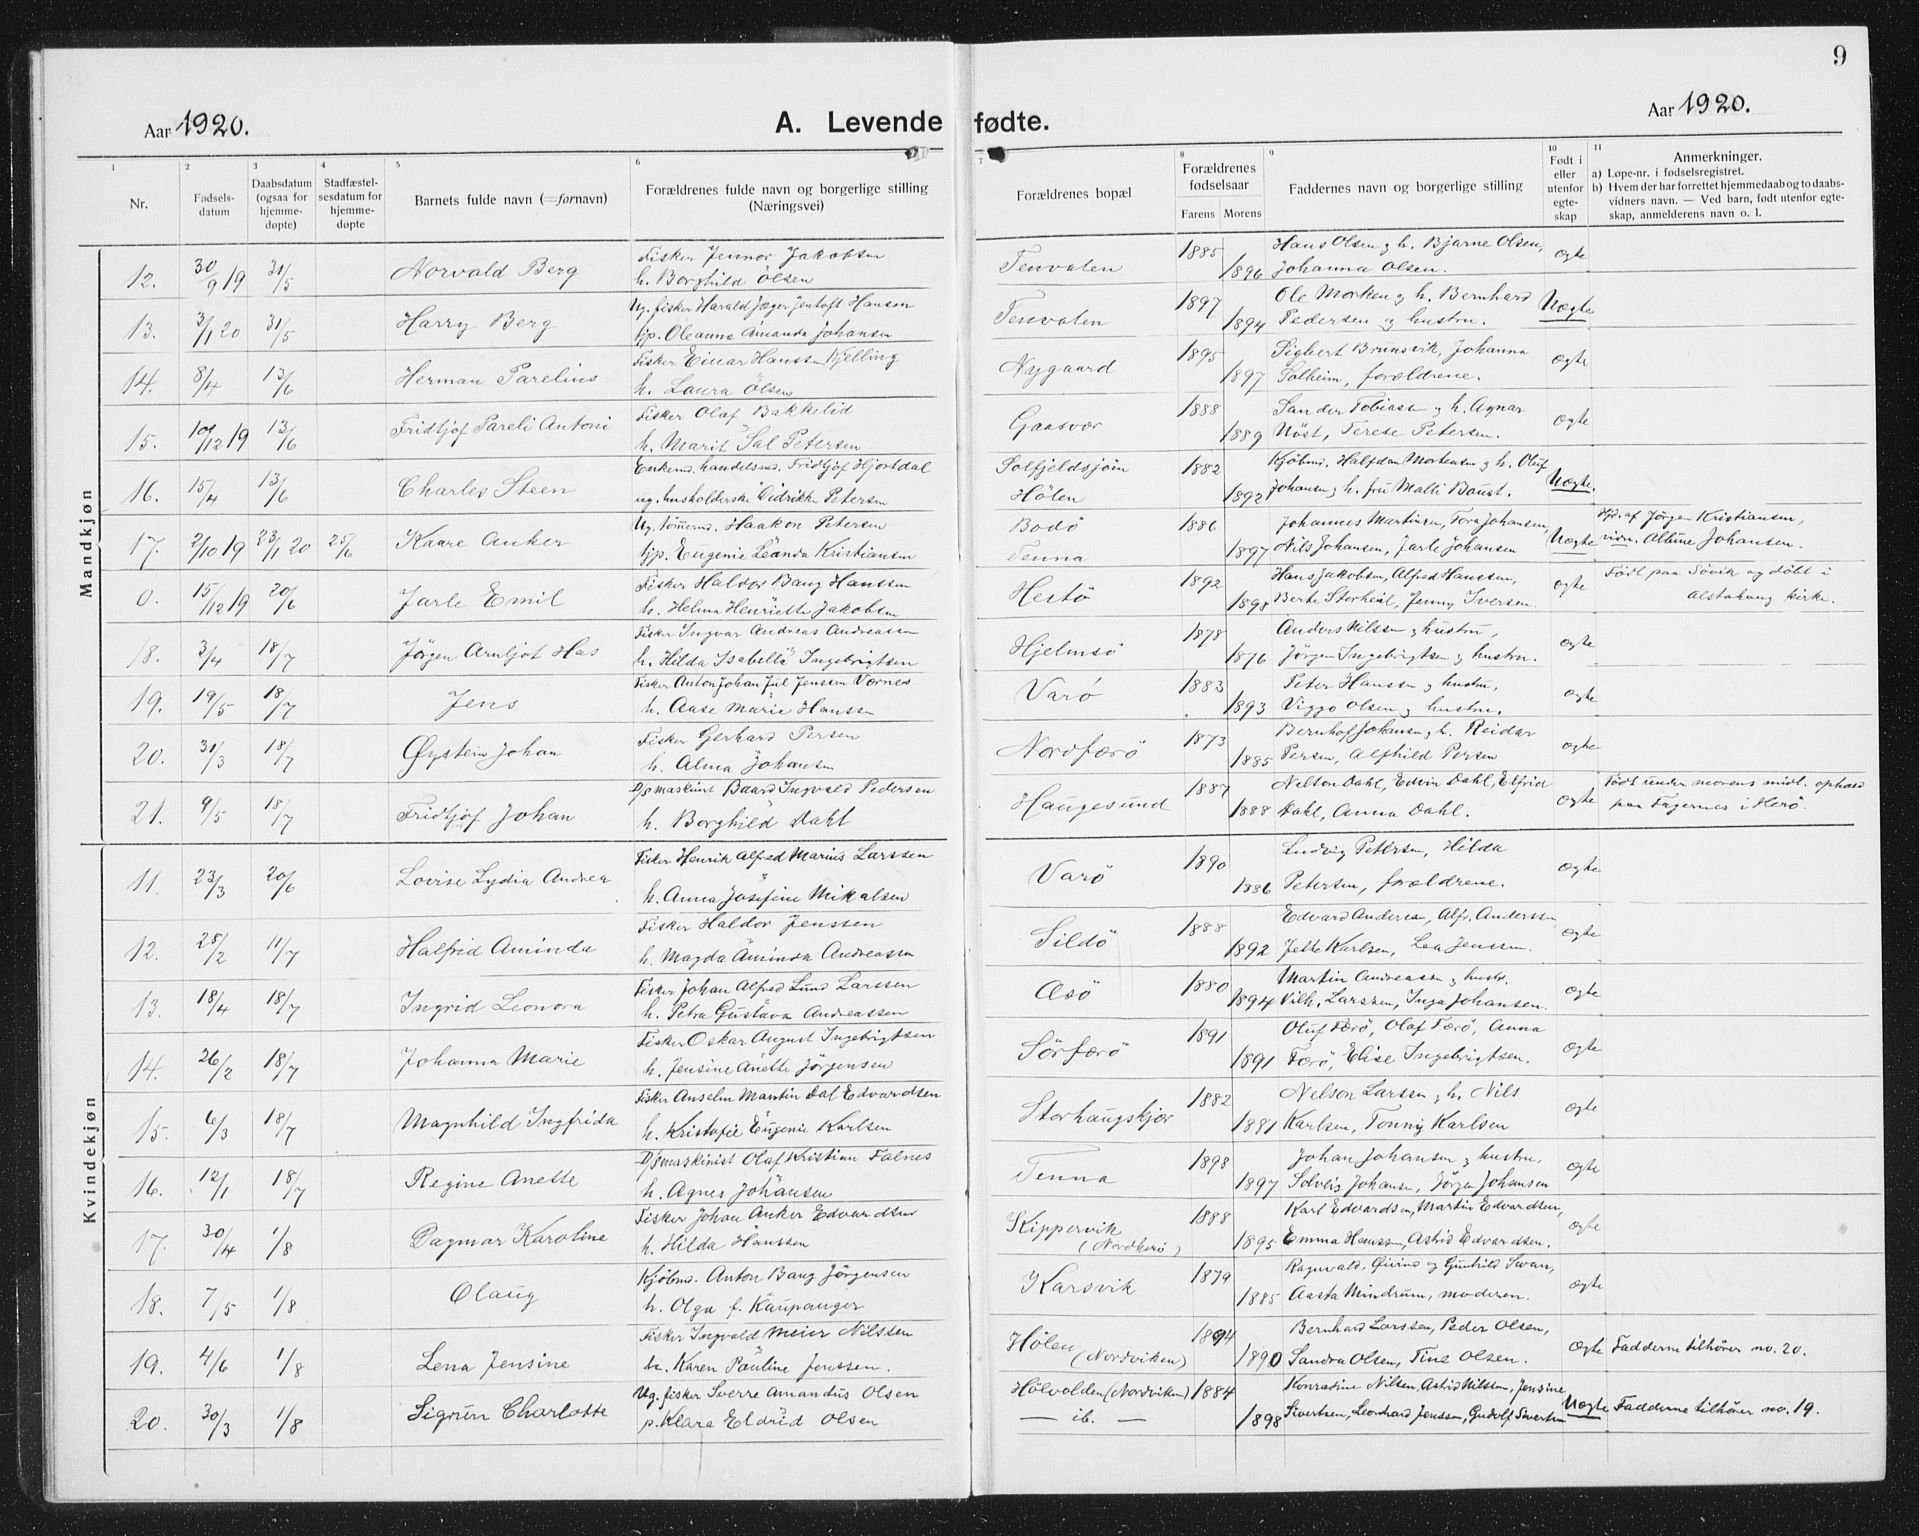 9
Aar 1920.
A. Levende fødte.
Aar 1920.
1 2 3 4 5 6 7 8 9 10 11
Nr.
Fødsels-
datum
Daabsdatum
(ogsaa for
hjemme-
døpte)
Stadfæstel-
sesdatum for
hjemme-
døpte
Barnets fulde navn (=fornavn)
Forældrenes fulde navn og borgerlige stilling
(Næringsvei)
Forældrenes bopæl
Forældrenes
fødselsaar
Farens Morens
Faddernes navn og borgerlige stilling
Født i
eller
utenfor
egte-
skap
Anmerkninger.
a) Løpe-nr. i fødselsregistret.
b) Hvem der har forrettet hjemmedaab og to daabs-
vidners navn. — Ved barn, født utenfor egte-
skap, anmelderens navn o. l.
Mandkjøn
12. 30/9 19 31/5 Norvald Berg
Fisker Jennor Jakobsen
h. Borghild Olsen
Tenvalen 1885 1896
Hans Olsen og h. Bjarne Olsen,
Johanna Olsen.
ogte
13. 3/1 20 31/5 Harry Berg
Ug. fisker Harald Jæger Jentoft Hansen
pp. Oleanna Amanda Johansen
Tenvalen 1897 1894
Ole Morken og h. Bernhard
Pedersen og hustru.
Uægte
14. 8/4 13/6 Herman Parelius
Fisker Einar Hanssen Kjelling
h. Laura Olsen
Nygaard 1895 1897
Sigbert Brunsvik, Johanna
Solheim, forældrene.
ægte
15. 10/12 19 13/6 Fridtjof Pareli Antoni
Fisker Olaf Bakkelid
h. Marit Sal Petersen
Gaasvær 1888 1889
Sander Tobiasen og h. Agnar
Nöst, Terese Petersen.
ogte
16. 15/4 13/6 Charles Steen
Enkemd. handelsmd. Fridtjof Hjortdal
ug. husholderske Didrikke Petersen
Solfjeldsjöin
Hölen
1882 1892
Kjöbmd. Halfdan Mortensen og h. Oluf
Johansen, h. fru Malli Baust.
Uægte.
17. 2/10 19 23/1 20 25/6 Kaare Anker
Ug. tömermd. Haakon Petersen
pp. Eugenie Leanda Kristiansen
Bodö
Tenna
1886 1897
Johannes Martinsen, Tora Johansen,
Nils Johansen, Jarle Johansen
Uægte
Hjd. af Jørgen Kristiansen,
vidn. Albine Johansen.
0. 15/12 19 20/6 Jarle Emil
Fisker Haldor Bang Hanssen
h. Helma Henriette Jakobsen
Hestö 1892 1898
Hans Jakobsen, Alfred Hanssen,
Berte Storheil, Jenny Iversen.
ogte
Født paa Søvik og döbt i
Alstahaug kirke.
18. 3/4 18/7 Jørgen Arnljot Has
Fisker Ingvar Andreas Andreassen
h. Hilda Isabella Ingebrigtsen
Hjelmsö 1878 1876
Anders Nilssen og hustru,
Jørgen Ingebrigtsen og hustru.
ogte
19. 19/5 18/7 Jens
Fisker Anton Johan Jul Jenssen Værnes
h. Aase Marie Hanssen
Varö 1883 1893
Peter Hanssen og hustru,
Viggo Olsen og hustru.
ogte
20. 31/3 18/7 Øystein Johan
Fisker Gerhard Persen
h. Alma Johansen
Nordfærö 1873 1885
Bernhof Johansen og h. Reidar
Persen, Alfhild Persen
ogte
21. 9/5 18/7 Fridtjof Johan
D/S maskinist Baard Ingvald Pedersen
h. Borghild Dahl
Haugesund 1887 1888
Nelton Dahl, Edvin Dahl, Elfrid
Dahl, Anna Dahl.
ogte
Født under morens midl. ophold
paa Fagernes i Herö.
Kvindekjøn
11. 23/3 20/6 Lovise Lydia Andrea
Fisker Henrik Alfred Marius Larssen
h. Anna Josefine Mikalsen
Varö 1890 1886
Ludvig Petersen, Hilda
Petersen, forældrene.
ogte
12. 25/2 11/7 Halfrid Aminda
Fisker Haldor Jenssen
h. Magda Aminda Andreassen
Sildö 1888 1892
Edvard Andersen, Alfr. Anderssen
Jette Karlsen, Lea Jenssen.
ogte
13. 18/4 18/7 Ingrid Leonora
Fisker Johan Alfred Lund Larssen
h. Petra Gustava Andreassen
Æsö 1880 1894
Martin Andreassen og hustr.
Vilh. Larssen, Inga Johansen.
ogte
14. 26/2 18/7 Johanna Marie
Fisker Oskar August Ingebrigtsen
h. Jensine Anette Jørgensen
Sörfærö 1891 1891
Oluf Færö, Olaf Færö, Anna
Færö, Elise Ingebrigtsen.
ogte
15. 6/3 18/7 Magnhild Ingfrida
Fisker Anselm Martin Dal Edvardsen
h. Kristofie Eugenie Karlsen
Storhaugskjær 1882 1881
Nelson Larssen og h. Nils
Karlsen, Tonny Karlsen
ogte
16. 12/1 18/7 Regine Anette
D/S maskinist Olaf Kristian Falnes
h. Agnes Johansen
Tenna 1898 1897
Johan Johansen og hustru,
Solveig Johansen, Jørgen Johansen
ogte
17. 30/4 1/8 Dagmar Karoline
Fisker Johan Anker Edvardsen
h. Hilda Hanssen
Kippervik
(Nordherö)
1888 1895
Karl Edvardsen, Martin Edvardsen,
Emma Hanssen, Astrid Edvardsen.
ogte
18. 7/5 1/8 Olaug
Kjöbmd. Anton Bang Jörgensen
h. Olga f. Kaupanger
Karsvik 1879 1885
Ragnvald, Øivind og Gunhild Swan,
Aasta Mindrum, moderen.
ogte
19. 4/6 1/8 Lena Jensine
Fisker Ingvald Meier Nilssen
h. Karen Pauline Jenssen.
Hölen
(Nordviken)
1894 1890
Bernhard Larssen, Peder Olsen,
Sandra Olsen, Tine Olsen.
ogte
Fadderne tilhører no. 20.
20. 30/3 1/8 Sigrun Charlotte
Ug. fisker Sverre Amandus Olsen
p. Klara Eldrid Olsen
Hölvolden (Nordviken)
— ib. —
1884 1898
Konradine Nilsen, Astrid Nilssen, Jensine
Sivertsen, Leonhard Jenssen, Gudolf Sivertsen
Uægte
Fadderne tilhører no. 19.